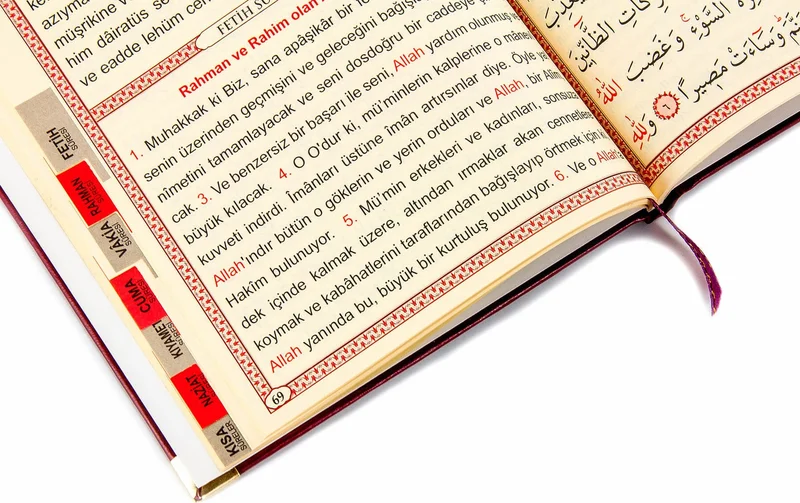 azyma
müşrikîne v
him dâiratüs se
ve eadde lehüm cen
FETİH SÛ
Rahman ve Rahim olan
1. Muhakkak ki Biz, sana apâşikâr bir
senin üzerinden geçmişini ve geleceğini bağış
nîmetini tamamlayacak ve seni dosdoğru bir caddeye
cak. 3. Ve benzersiz bir başarı ile seni, Allah yardım olunmuş
büyük kılacak. 4. O O'dur ki, mü'minlerin kalplerine o mâne
kuvveti indirdi. Îmânları üstüne îmân artırsınlar diye. Öyle ya
Allah'ındır bütün o göklerin ve yerin orduları ve Allah, bir Alîm
Hakîm bulunuyor. 5. Mü'min erkekleri ve kadınları, sonsuza
dek içinde kalmak üzere, altından ırmaklar akan cennetlere
koymak ve kabâhatlerini taraflarından bağışlayıp örtmek için
Allah yanında bu, büyük bir kurtuluş bulunuyor. 6. Ve o Allah
69
FETİH SÛRESİ
RAHMAN SÛRESİ
VÂKIA SÛRESİ
CUMA SÛRESİ
KIYAMET SÛRESİ
NAZİAT
KISA SÛRELER
السَّوْءِ وَغَضِبَ
اللّٰهُ
وَسَٓاءَتْ مَص۪يرًا
٦
وَلِلّٰهِ